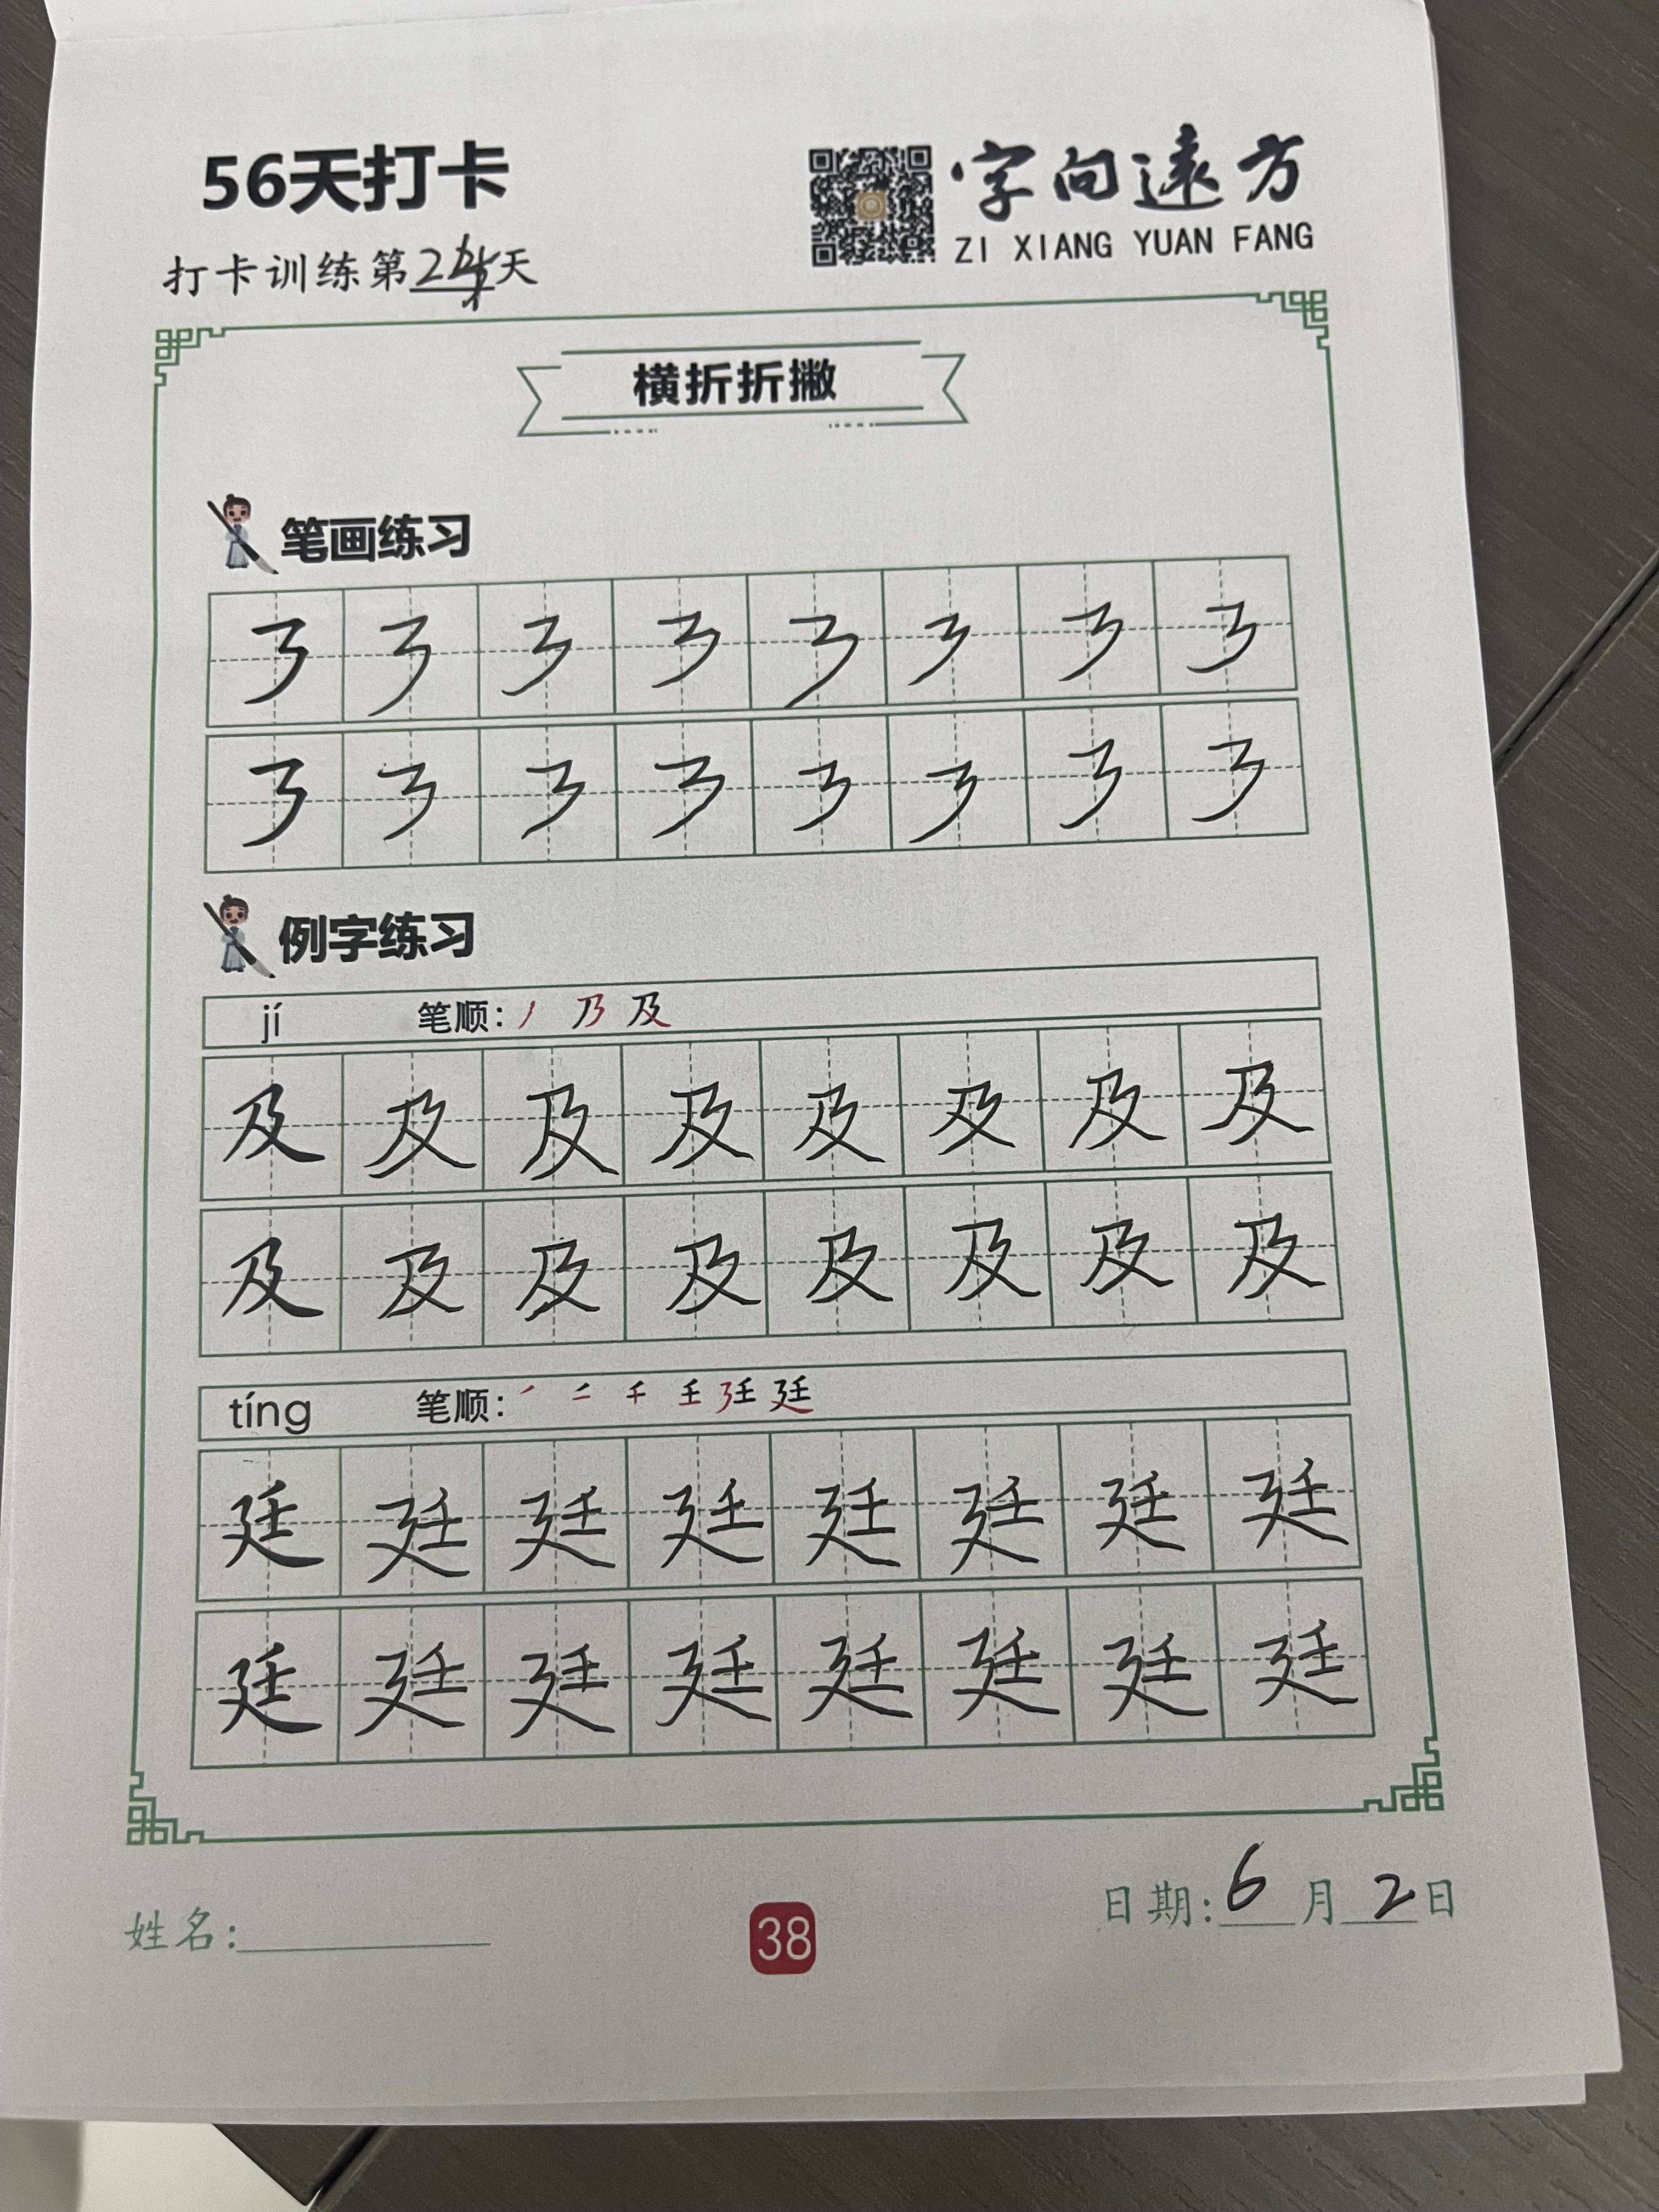 56天打卡
字向远方
ZI XIANG YUAN FANG
打卡训练第24天
横折折撇
笔画练习
㇋ ㇋ ㇋ ㇋ ㇋ ㇋ ㇋ ㇋
㇋ ㇋ ㇋ ㇋ ㇋ ㇋ ㇋ ㇋
例字练习
jí 笔顺: 丿 乃 及
及 及 及 及 及 及 及 及
及 及 及 及 及 及 及 及
tíng 笔顺: 廷
廷 廷 廷 廷 廷 廷 廷 廷
廷 廷 廷 廷 廷 廷 廷 廷
姓名:
38
日期: 6 月 2 日